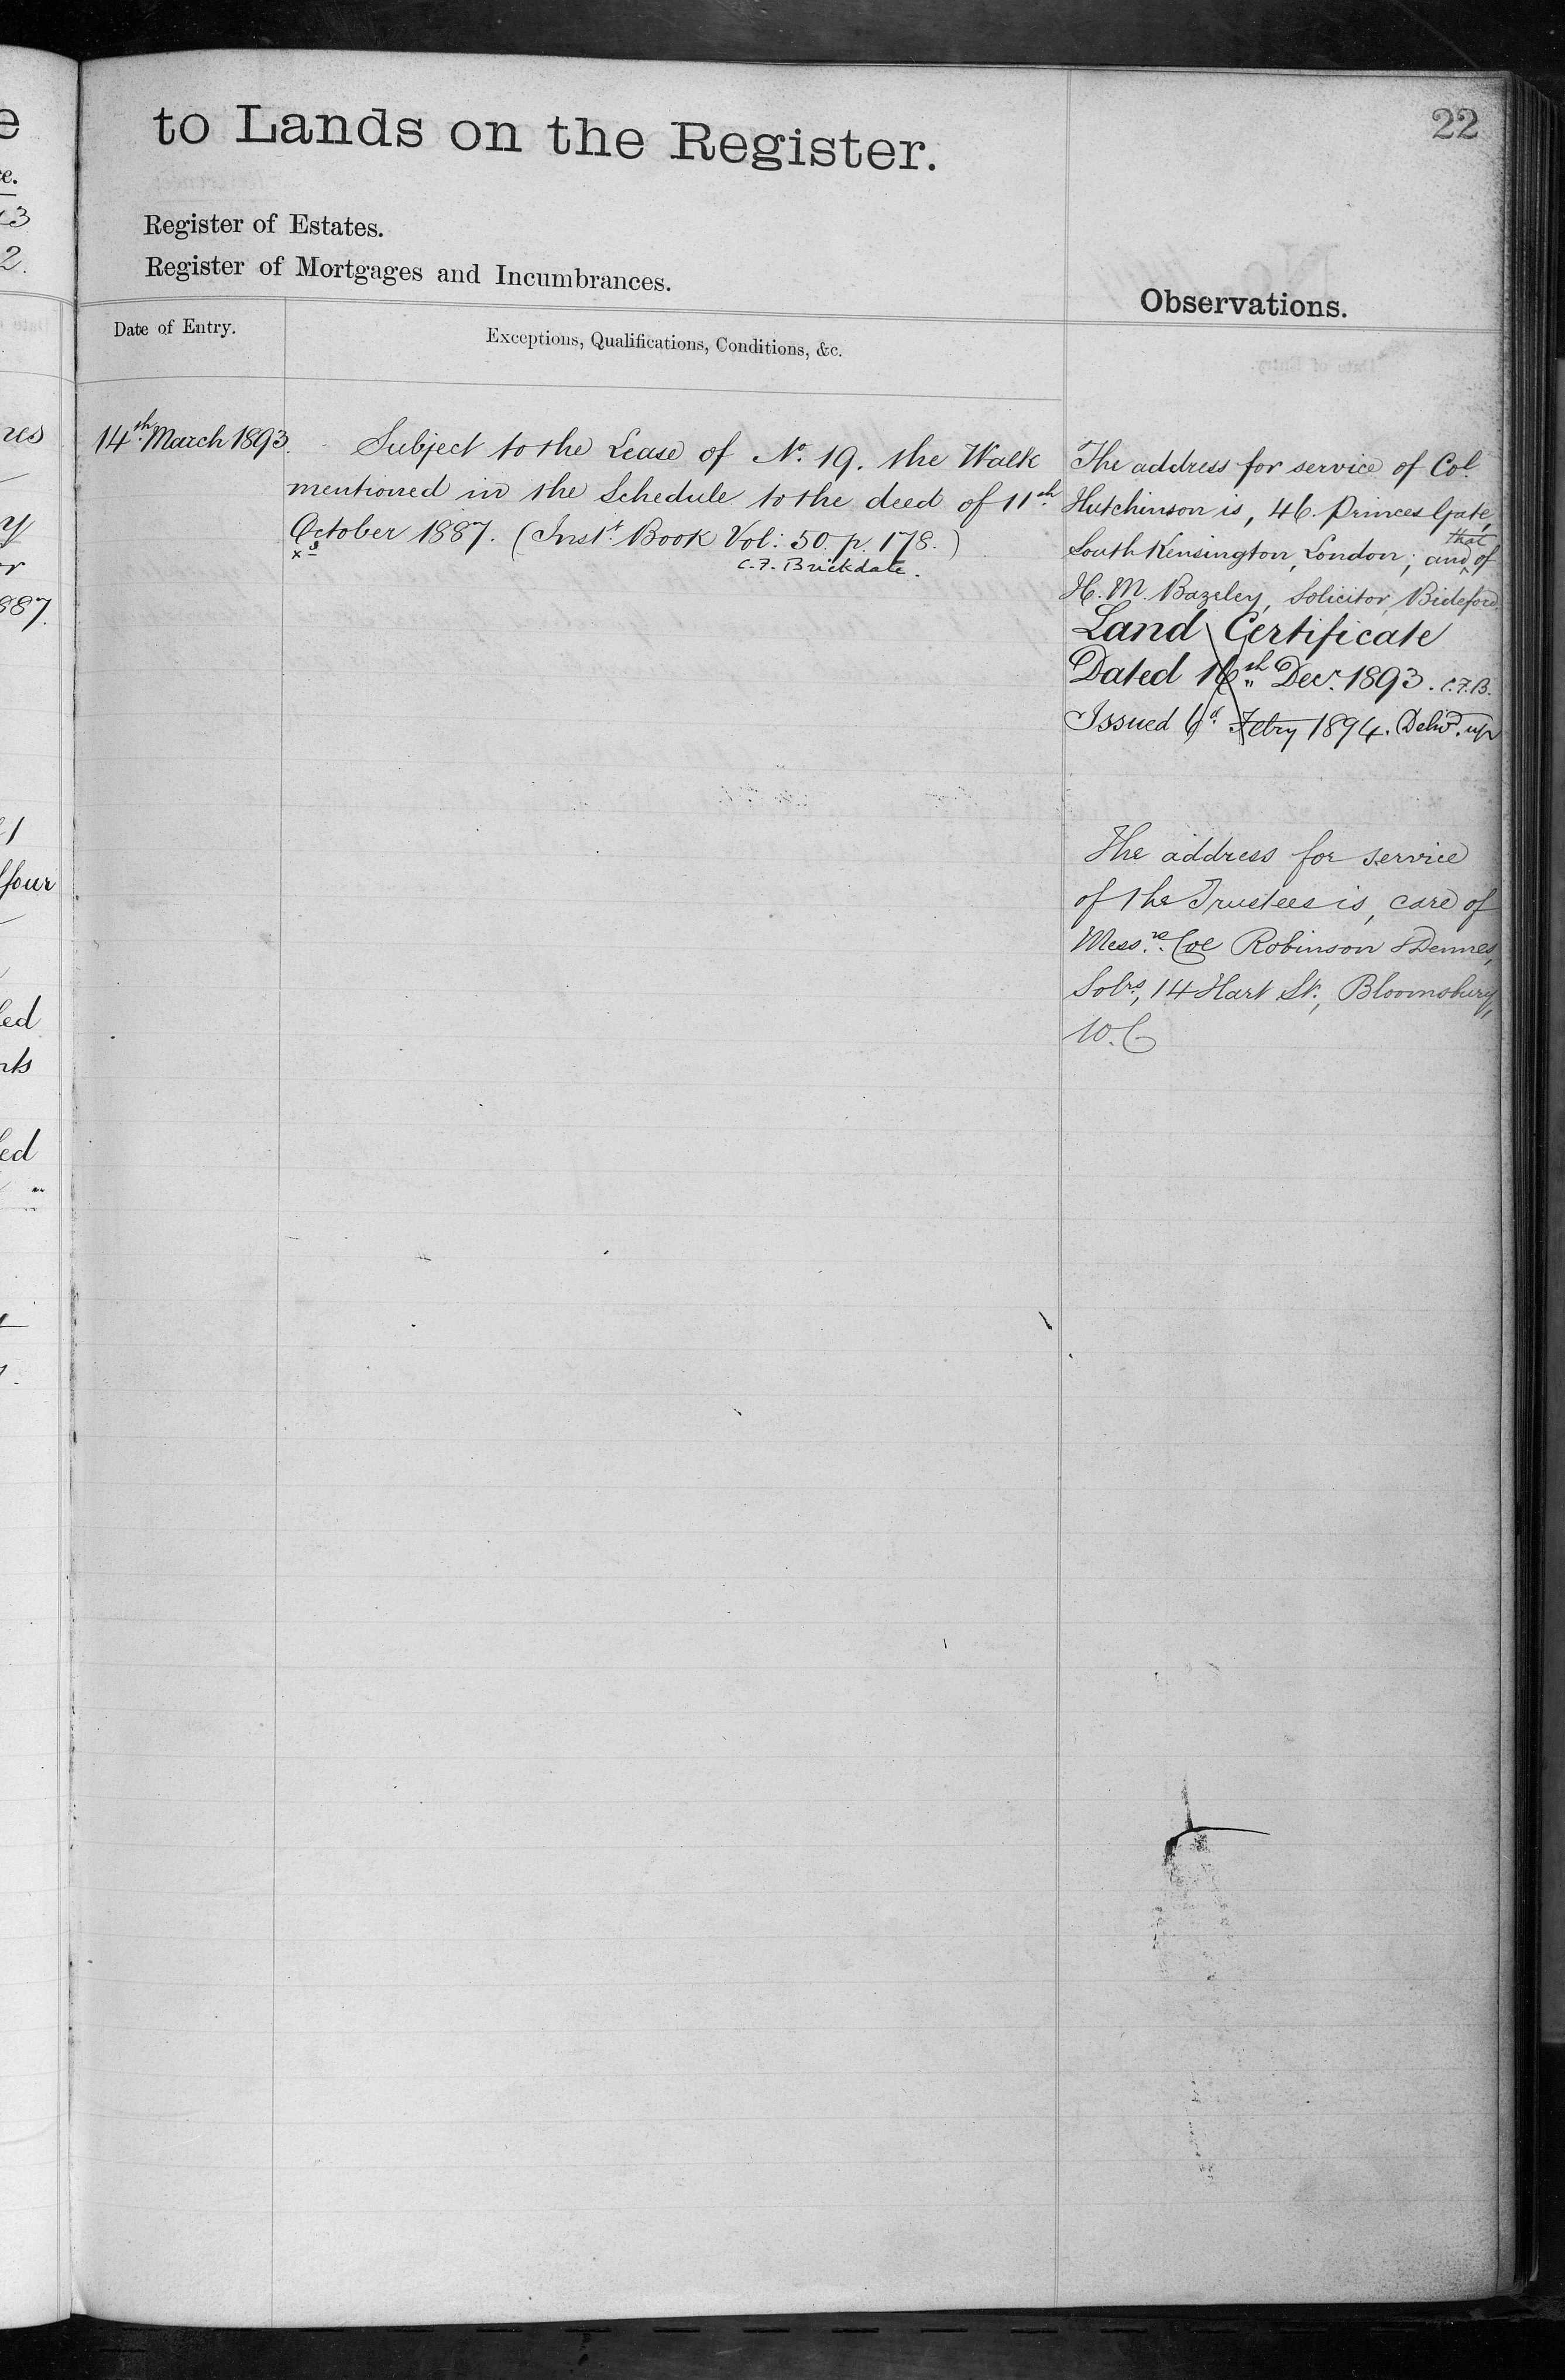 to Lands on the Register.
22
Register of Estates.
Register of Mortgages and Incumbrances.
Observations.
Date of Entry.
Exceptions, Qualifications, Conditions, &c.
14th March 1893.
Subject to the Lease of No. 19. the Walk
mentioned in the Schedule to the deed of 11th
October 1887. (Inst. Book Vol: 50. p. 178.)
C. F. Brickdale.
The address for service of Col.
Hutchinson is, 46. Princes Gate,
South Kensington, London; and that of
H. M. Bazeley, Solicitor, Bideford.
Land Certificate
Dated 16th Decr. 1893. C.F.B.
Issued 6 Febry 1894. Delivd. up
The address for service
of the Trustees is, care of
Messrs. Coe Robinson & Dennes,
Solrs, 14 Hart St., Bloomsbury,
W.C
e
e.
13
2.
res
y
r
887.
1
four
led
rts
led